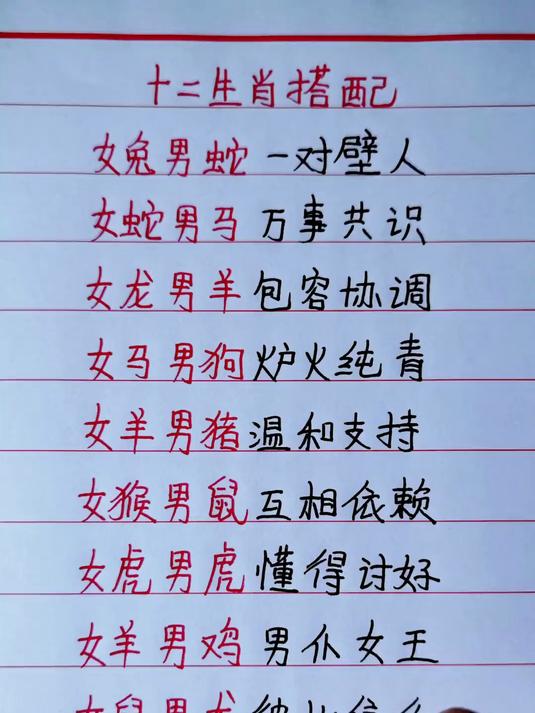 十二生肖搭配
女兔男蛇 一对壁人
女蛇男马 万事共识
女龙男羊 包容协调
女马男狗 炉火纯青
女羊男猪 温和支持
女猴男鼠 互相依赖
女虎男虎 懂得讨好
女羊男鸡 男仆女王